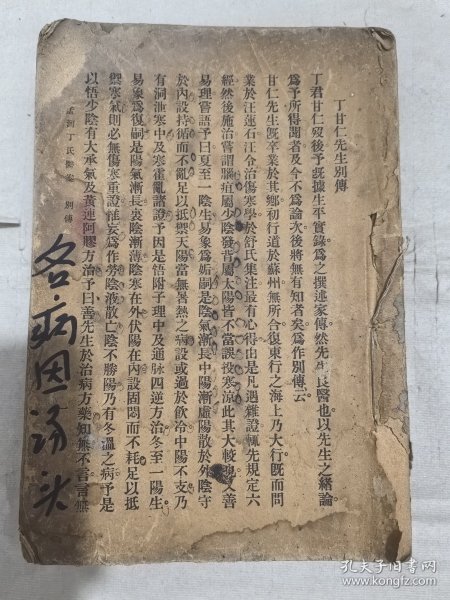 丁甘仁先生別傳
丁君甘仁歿後予旣據生平實錄爲之撰述家傳然先生良醫也以先生之緒論
爲予所得聞者及今不爲論次後將無有知者矣爲作別傳云
甘仁先生旣卒業於其鄉初行道於蘇州無所合復東行之海上乃大行旣而問
業於汪蓮石汪令治傷寒學於舒氏集注最有心得由是凡遇雜證輒先規定六
經然後施治嘗謂腦疽屬少陰發背屬太陽皆不當誤投寒涼此其大較也又善
易理嘗語予曰夏至一陰生易象爲姤嗣是陰氣漸長中陽漸虛陽散於外陰守
於內設持循而不亂足以抵禦天陽當無暑熱之病設或過於飲冷中陽不支乃
有洞泄寒中及寒霍亂諸證予因是悟附子理中及通脉四逆方治冬至一陽生
易象爲復嗣是陽氣漸長裏陰漸薄陰寒在外伏陽在內設固閟而不耗足以抵
禦寒氣則必無傷寒重證徃妄爲作勞陰液散亡陰不勝陽乃有冬溫之病予是
以悟少陰有大承氣及黃連阿膠方治予曰善先生於治病方藥知無不言言無
孟河丁氏醫案 別傳
各病因湯头
孔夫子旧书网
www.kongfz.com